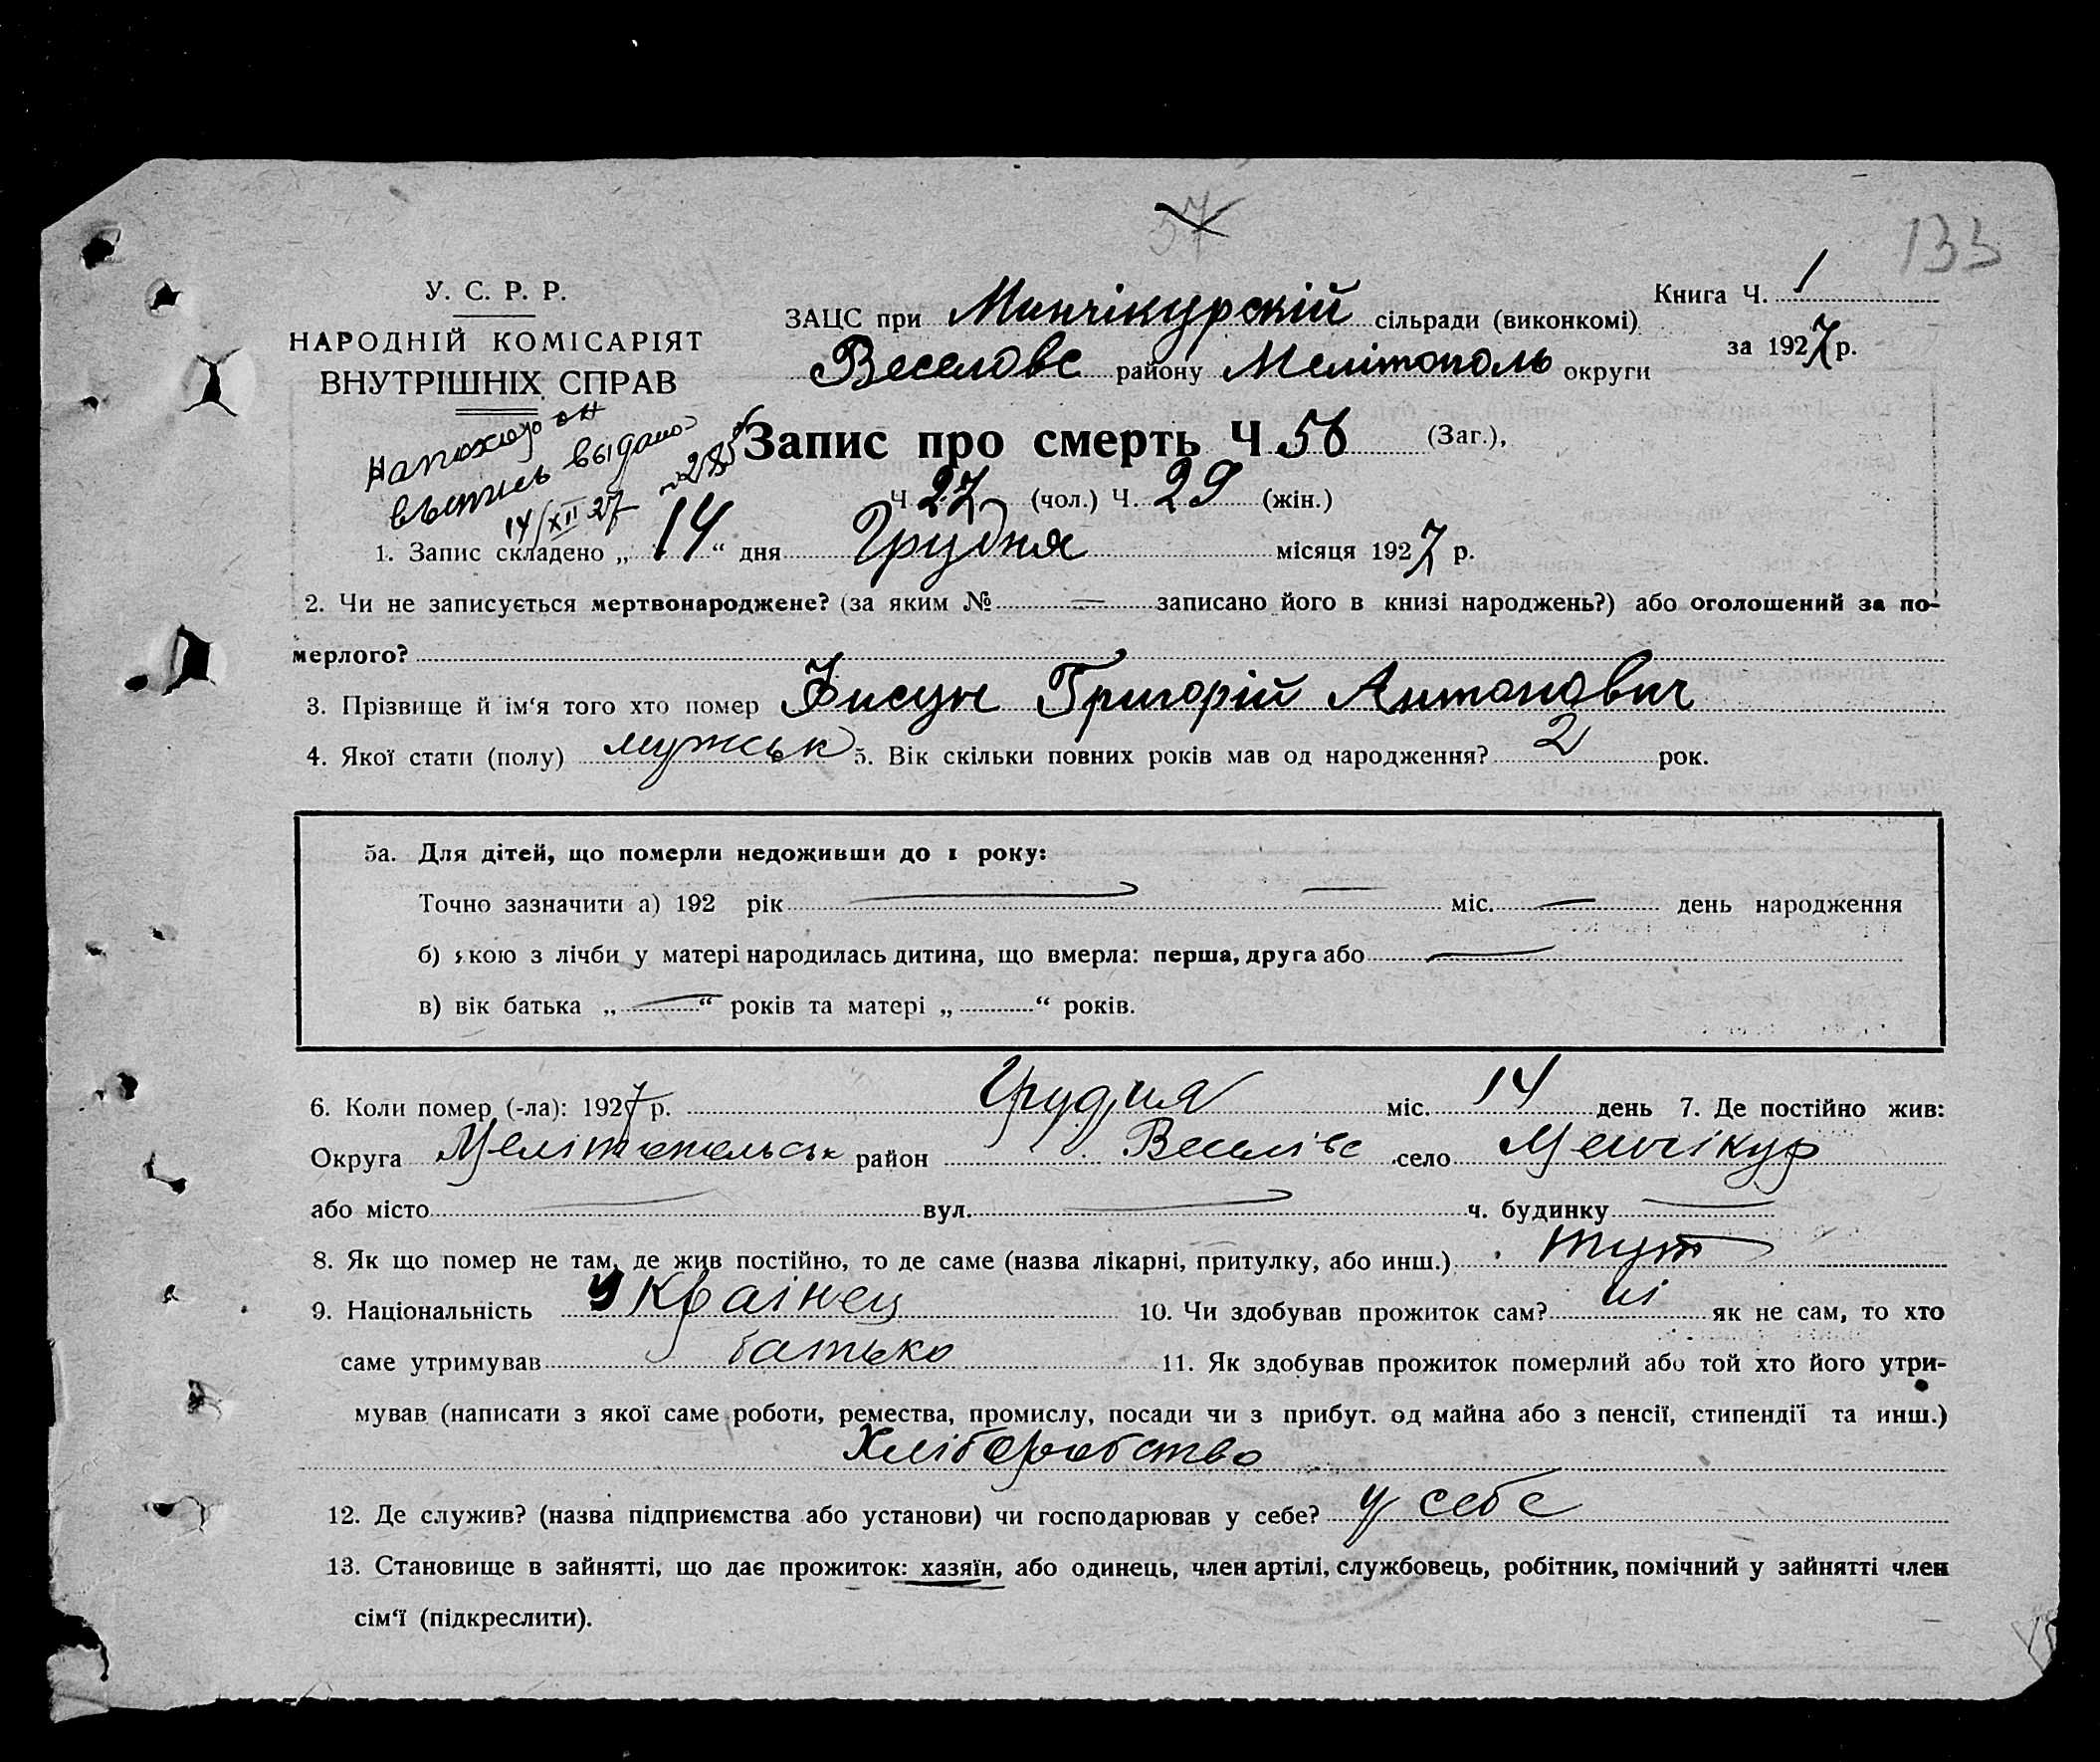 57
133
У. С. Р. Р.
НАРОДНІЙ КОМІСАРІЯТ
ВНУТРІШНІХ СПРАВ
Книга Ч. 1
за 1927 р.
ЗАЦС при Минчікурскій сільради (виконкомі)
Веселовс району Мелітополь округи
На похорон
выпись выдано
14/XII 27 № 285
Запис про смерть Ч. 56 (Заг.),
Ч. 27 (чол.) Ч. 29 (жін.)
1. Запис складено „14“ дня Грудня місяця 1927 р.
2. Чи не записується мертвонароджене? (за яким № — записано його в книзі народжень?) або оголошений за по-
мерлого?
3. Прізвище й ім‘я того хто помер Фисун Григорій Антонович
4. Якої стати (полу) мужськ 5. Вік скільки повних років мав од народження? 2 рок.
5а. Для дітей, що померли недоживши до 1 року:
Точно зазначити а) 192 рік — міс. — день народження
б) якою з лічби у матері народилась дитина, що вмерла: перша, друга або —
в) вік батька „—“ років та матері „ “ років.
6. Коли помер (-ла): 1927 р. Грудня міс. 14 день 7. Де постійно жив:
Округа Мелітопольськ район Веселівс село Менчікур
або місто — вул. — ч. будинку —
8. Як що помер не там, де жив постійно, то де саме (назва лікарні, притулку, або инш.) тут
9. Національність Украінец 10. Чи здобував прожиток сам? ні як не сам, то хто
саме утримував батько 11. Як здобував прожиток померлий або той хто його утри-
мував (написати з якої саме роботи, ремества, промислу, посади чи з прибут. од майна або з пенсії, стипендії та инш.)
Хліборобство
12. Де служив? (назва підприємства або установи) чи господарював у себе? у себе
13. Становище в зайнятті, що дає прожиток: хазяїн, або одинець, член артілі, службовець, робітник, помічний у зайнятті член
сім‘ї (підкреслити).